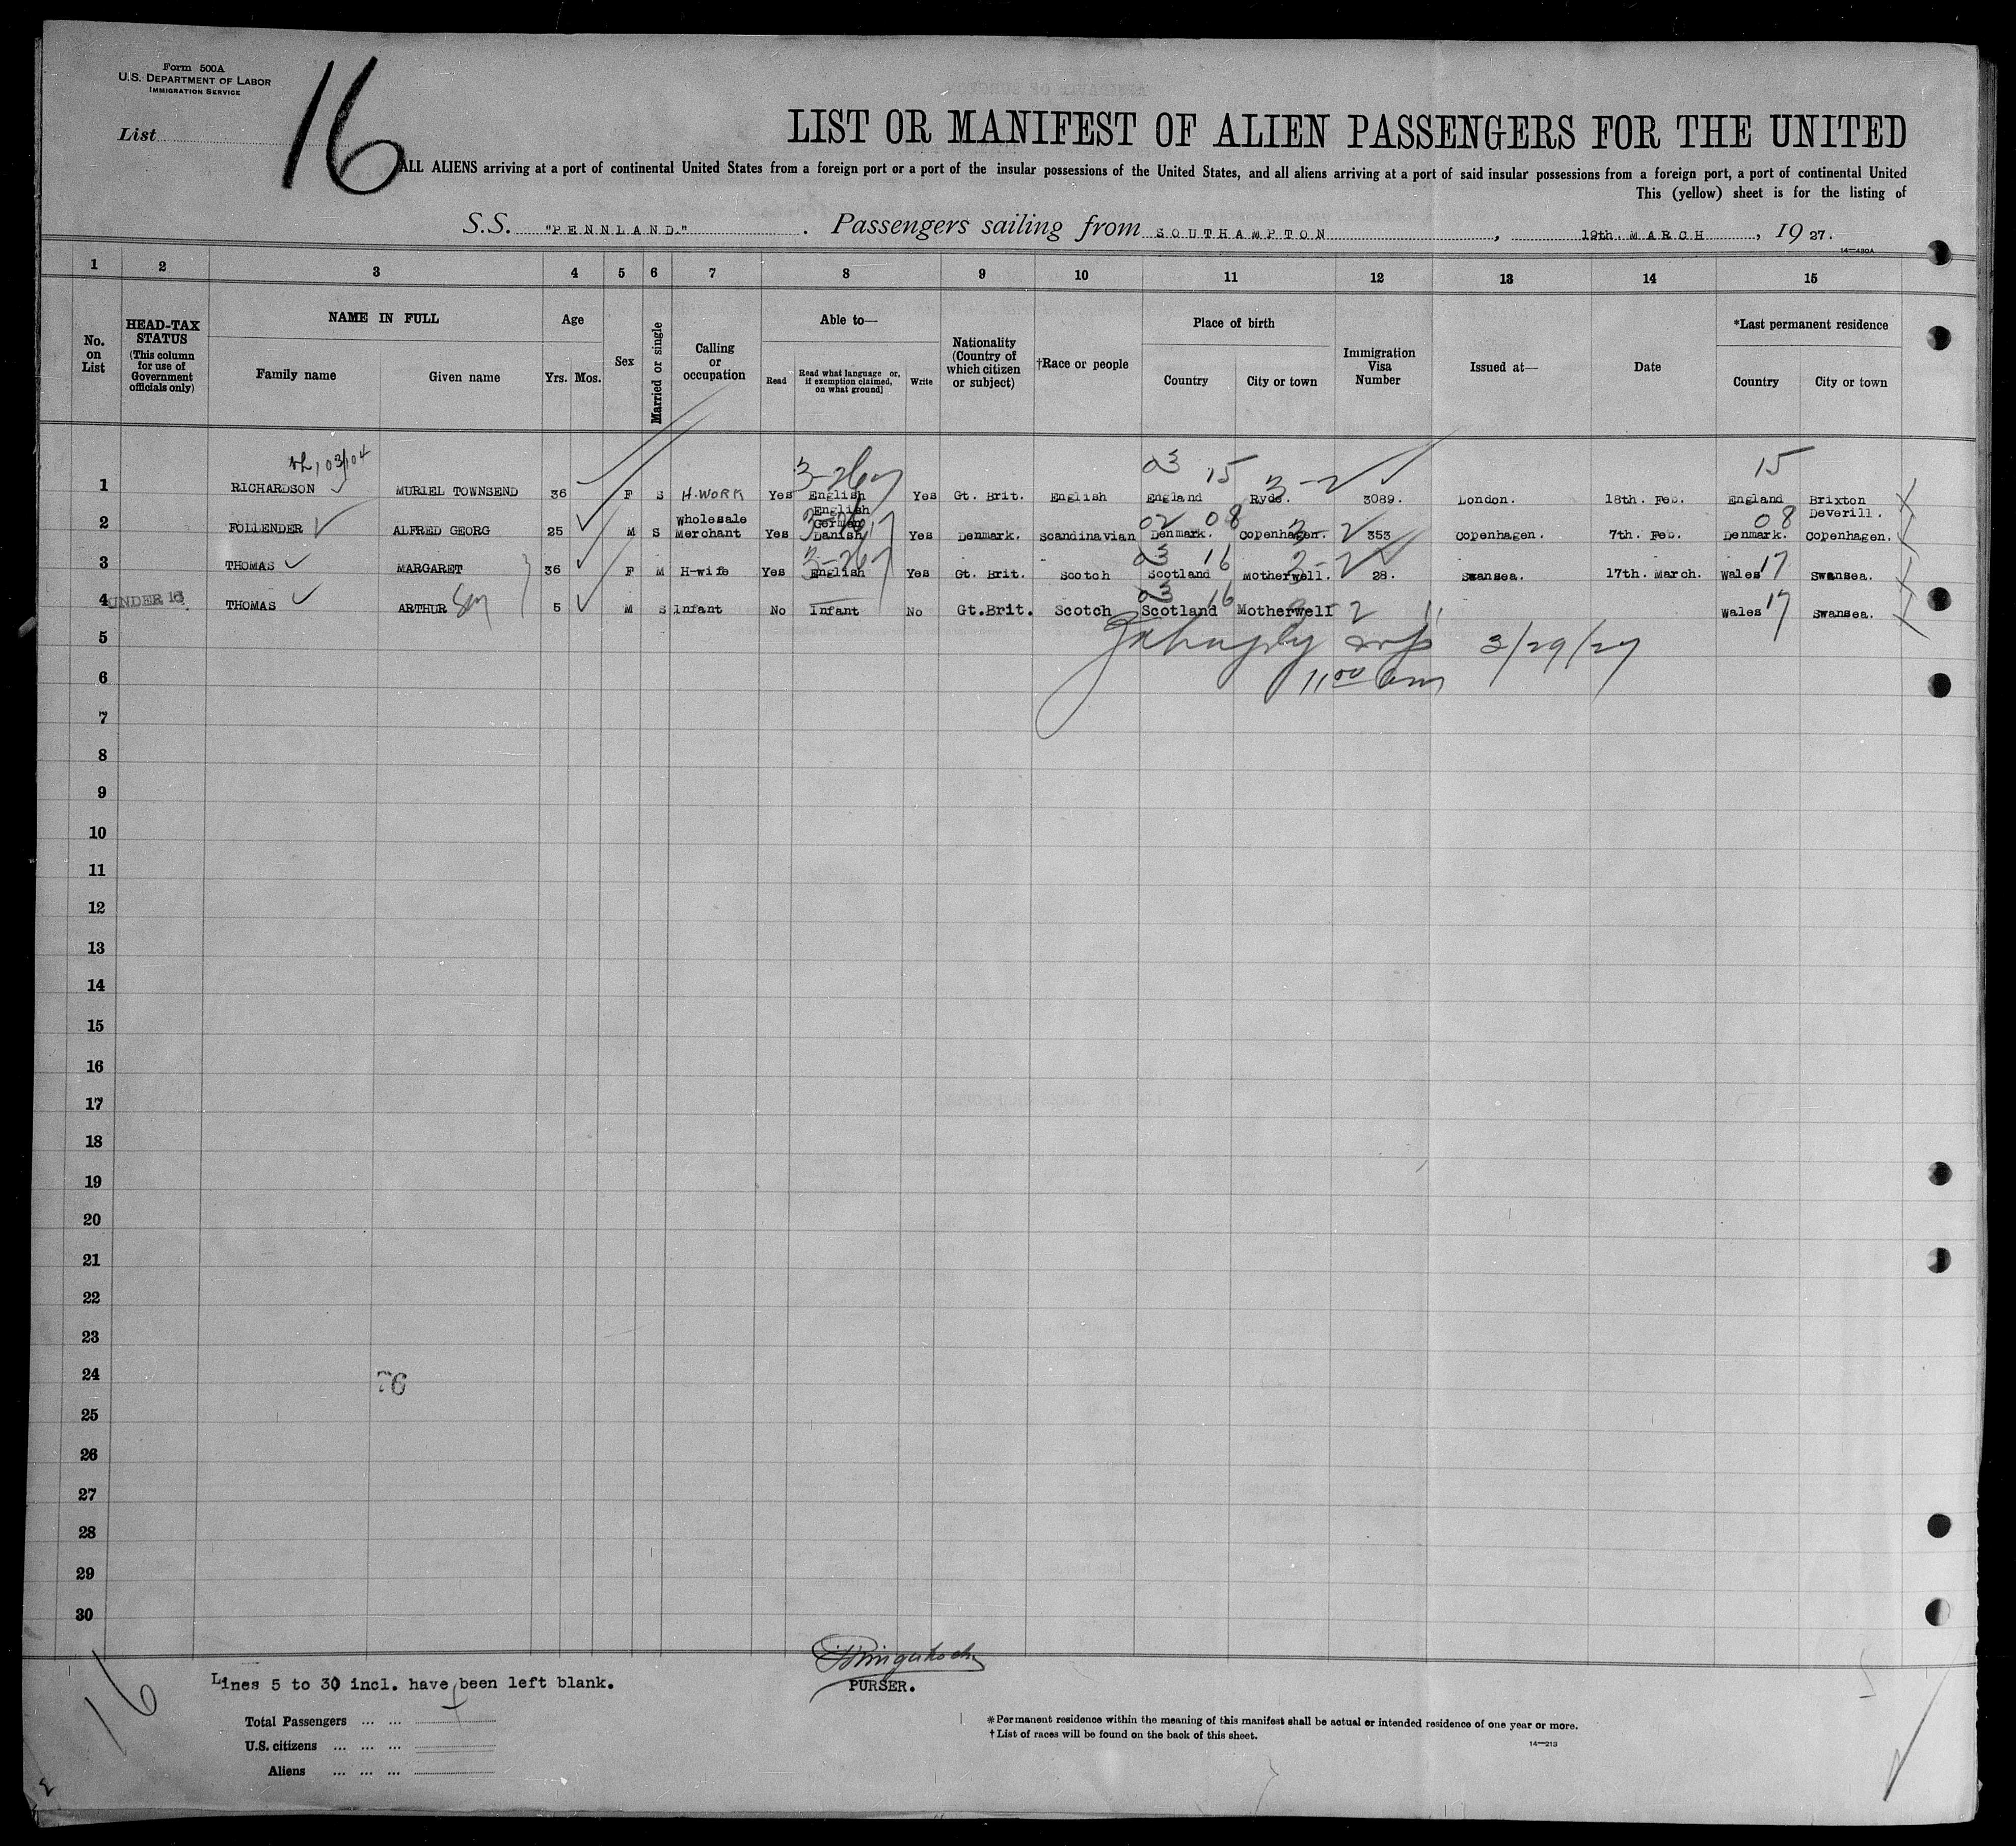 Form 500A
U.S. DEPARTMENT OF LABOR
IMMIGRATION SERVICE
List
16
LIST OR MANIFEST OF ALIEN PASSENGERS FOR THE UNITED
ALL ALIENS arriving at a port of continental United States from a foreign port or a port of the insular possessions of the United States, and all aliens arriving at a port of said insular possessions from a foreign port, a port of continental United
This (yellow) sheet is for the listing of
S.S. "PENNLAND." . Passengers sailing from SOUTHAMPTON , 19th. MARCH , 1927.
14—430A
1 2 3 4 5 6 7 8 9 10 11 12 13 14 15
No. on List
HEAD-TAX STATUS
(This column for use of Government officials only)
NAME IN FULL
Family name Given name
Age
Yrs. Mos.
Sex
Married or single
Calling or occupation
Able to—
Read Read what language or, if exemption claimed, on what ground] Write
Nationality (Country of which citizen or subject)
†Race or people
Place of birth
Country City or town
Immigration Visa Number
Issued at—
Date
*Last permanent residence
Country City or town
03 15 3-2 15
1 RICHARDSON MURIEL TOWNSEND 36 F S H.WORK Yes English Yes Gt. Brit. English England Ryde. 3089. London. 18th. Feb. England Brixton Deverill.
02 08 3-2 08
2 FOLLENDER ALFRED GEORG 25 M S Wholesale Merchant Yes English German Danish Yes Denmark. Scandinavian Denmark. Copenhagen. 353 Copenhagen. 7th. Feb. Denmark. Copenhagen.
03 16 2-2 17
3 THOMAS MARGARET 36 F M H-wife Yes English Yes Gt. Brit. Scotch Scotland Motherwell. 28. Swansea. 17th. March. Wales Swansea.
03 16 2 17
4 UNDER 16 THOMAS ARTHUR Son 5 M S Infant No Infant No Gt.Brit. Scotch Scotland Motherwell Wales Swansea.
5 3/29/27
6 11 00 am
7
8
9
10
11
12
13
14
15
16
17
18
19
20
21
22
23
24 76
25
26
27
28
29
30
16
Lines 5 to 30 incl. have been left blank.
PURSER.
Total Passengers ... ...
U.S. citizens ... ... ...
Aliens ... ... ...
*Permanent residence within the meaning of this manifest shall be actual or intended residence of one year or more.
†List of races will be found on the back of this sheet.
14—213